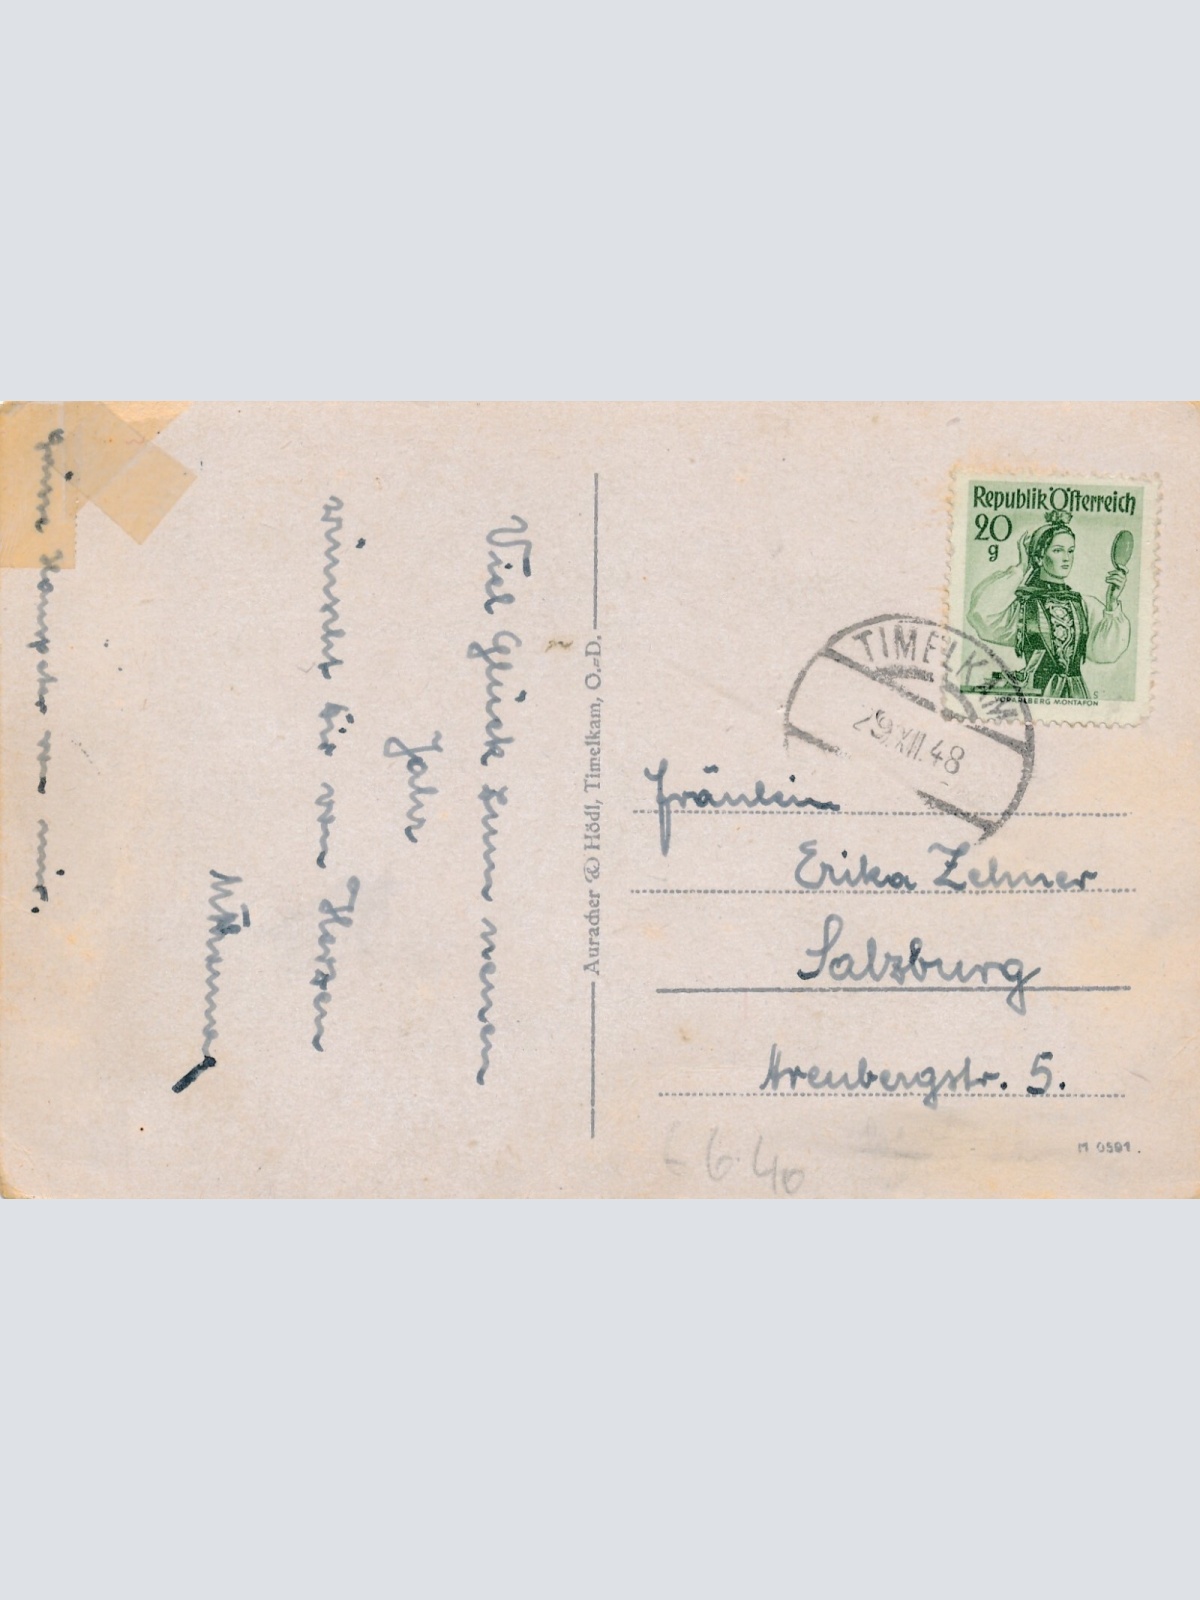 Viel Glück zum neuen
Jahr
wünscht dir von Herzen
Grüsse Hanspeter von mir.
Auracher & Hödl, Timelkam, O.-D.
Republik Österreich
20
g
VORARLBERG MONTAFON
TIMELKAM
29.XII.48
Fräulein
Erika Zehner
Salzburg
Arenbergstr. 5.
M 0591.
6.40